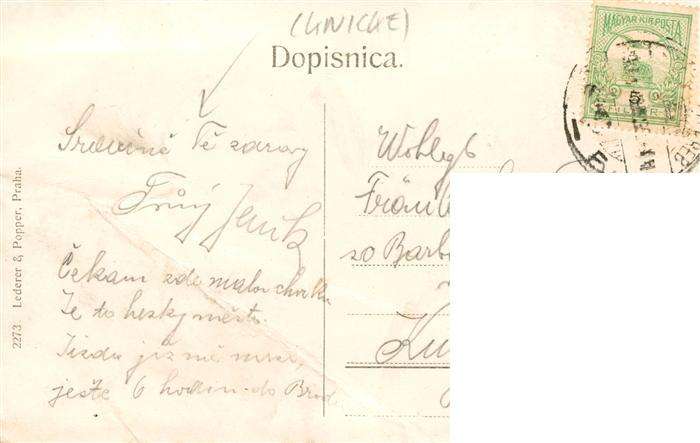 (UNICHE)
Dopisnica.
MAGYAR KIR. POSTA
Srdečné Tě zdravy
Tvůj Jeník
Čekám zde malou chvilku
Je to hezky město.
Jízdu již mě,
ješte 6 hodin do Brod
Wohlgb
Fräu
zo Barb
Ku
2273 Lederer & Popper, Praha.